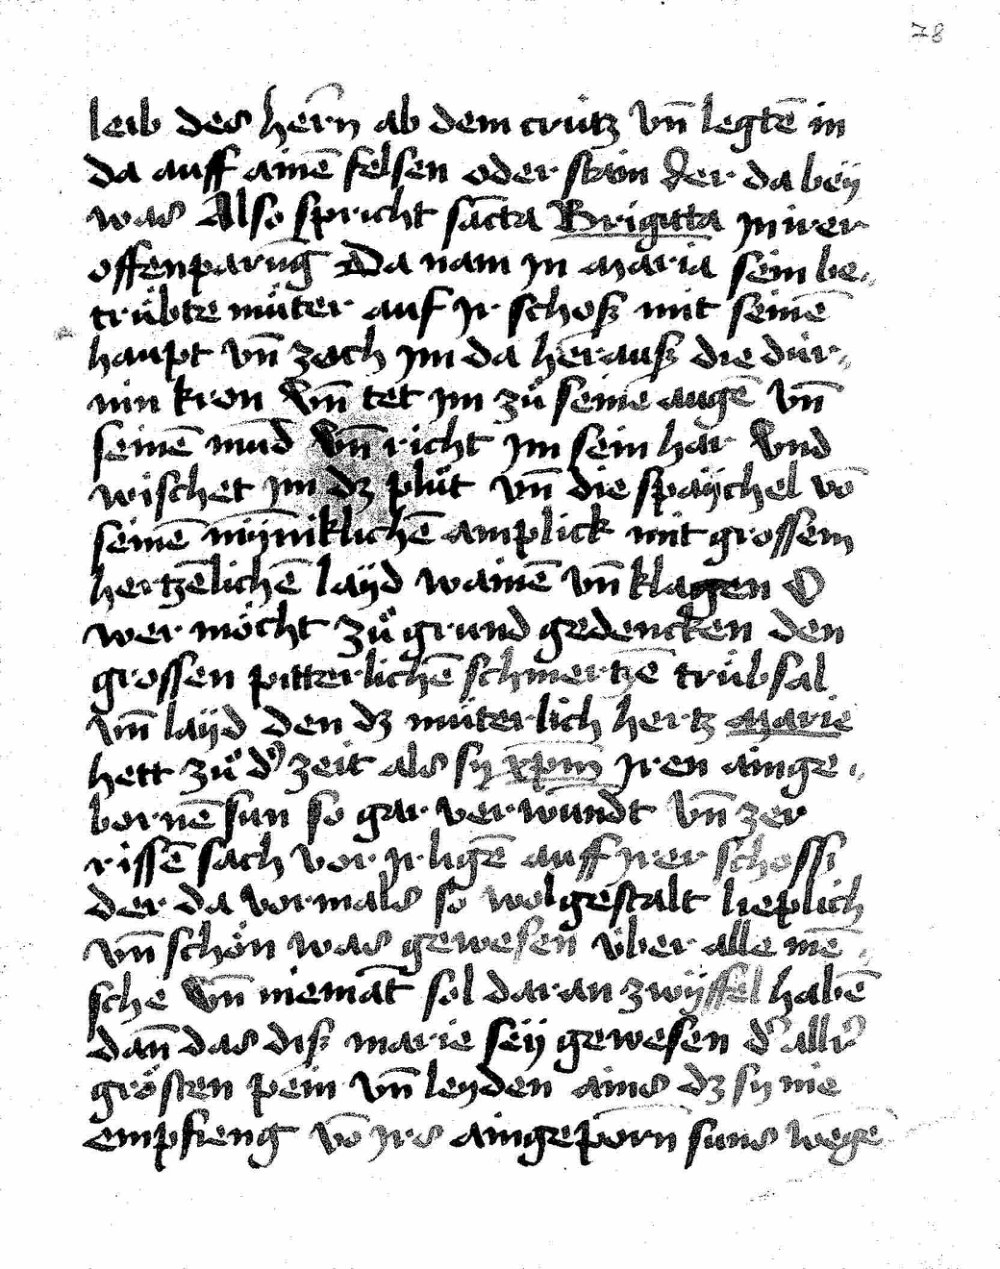 78
leib des herñ ab dem crütz vñ legtē in
da auff ainē felsen oder stain der da beÿ
was Also spricht sācta Brigitta in irer
offenparūg Da nam in maria sein be⸗
trübte müter auf ir schoß mit seinē
haupt vñ zoch im da herauß die dür⸗
nin kron Vñ tet im zů seinē augē vñ
seinē mūd Vñ richt im sein har Vnd
wischet im dz plůt vñ die spaÿchel vō
seinē mÿniklichē amplick mit grossem
hertzēlichē laÿd wainē vñ klagen O
wer möcht zů grund gedencken den
grossen pitterlichē schmertzē trübsal
vñ laÿd den dz müterlich hertz marie
hett zů d' zeit als sÿ xp̄m iren ainge⸗
bornē sun so gar verwundt vñ zer
rissē sach vor ir ligē auff irer schossi
der da vormals so wolgestalt lieplich
vñ schön was gewesen über alle mē⸗
schē Vñ niemāt sol daran zwÿffel habē
dañ das diß marie seÿ gewesen d' all'
grösten pein vñ leyden ains dz sÿ nie
empfieng vō irs aingeporn suns wegē